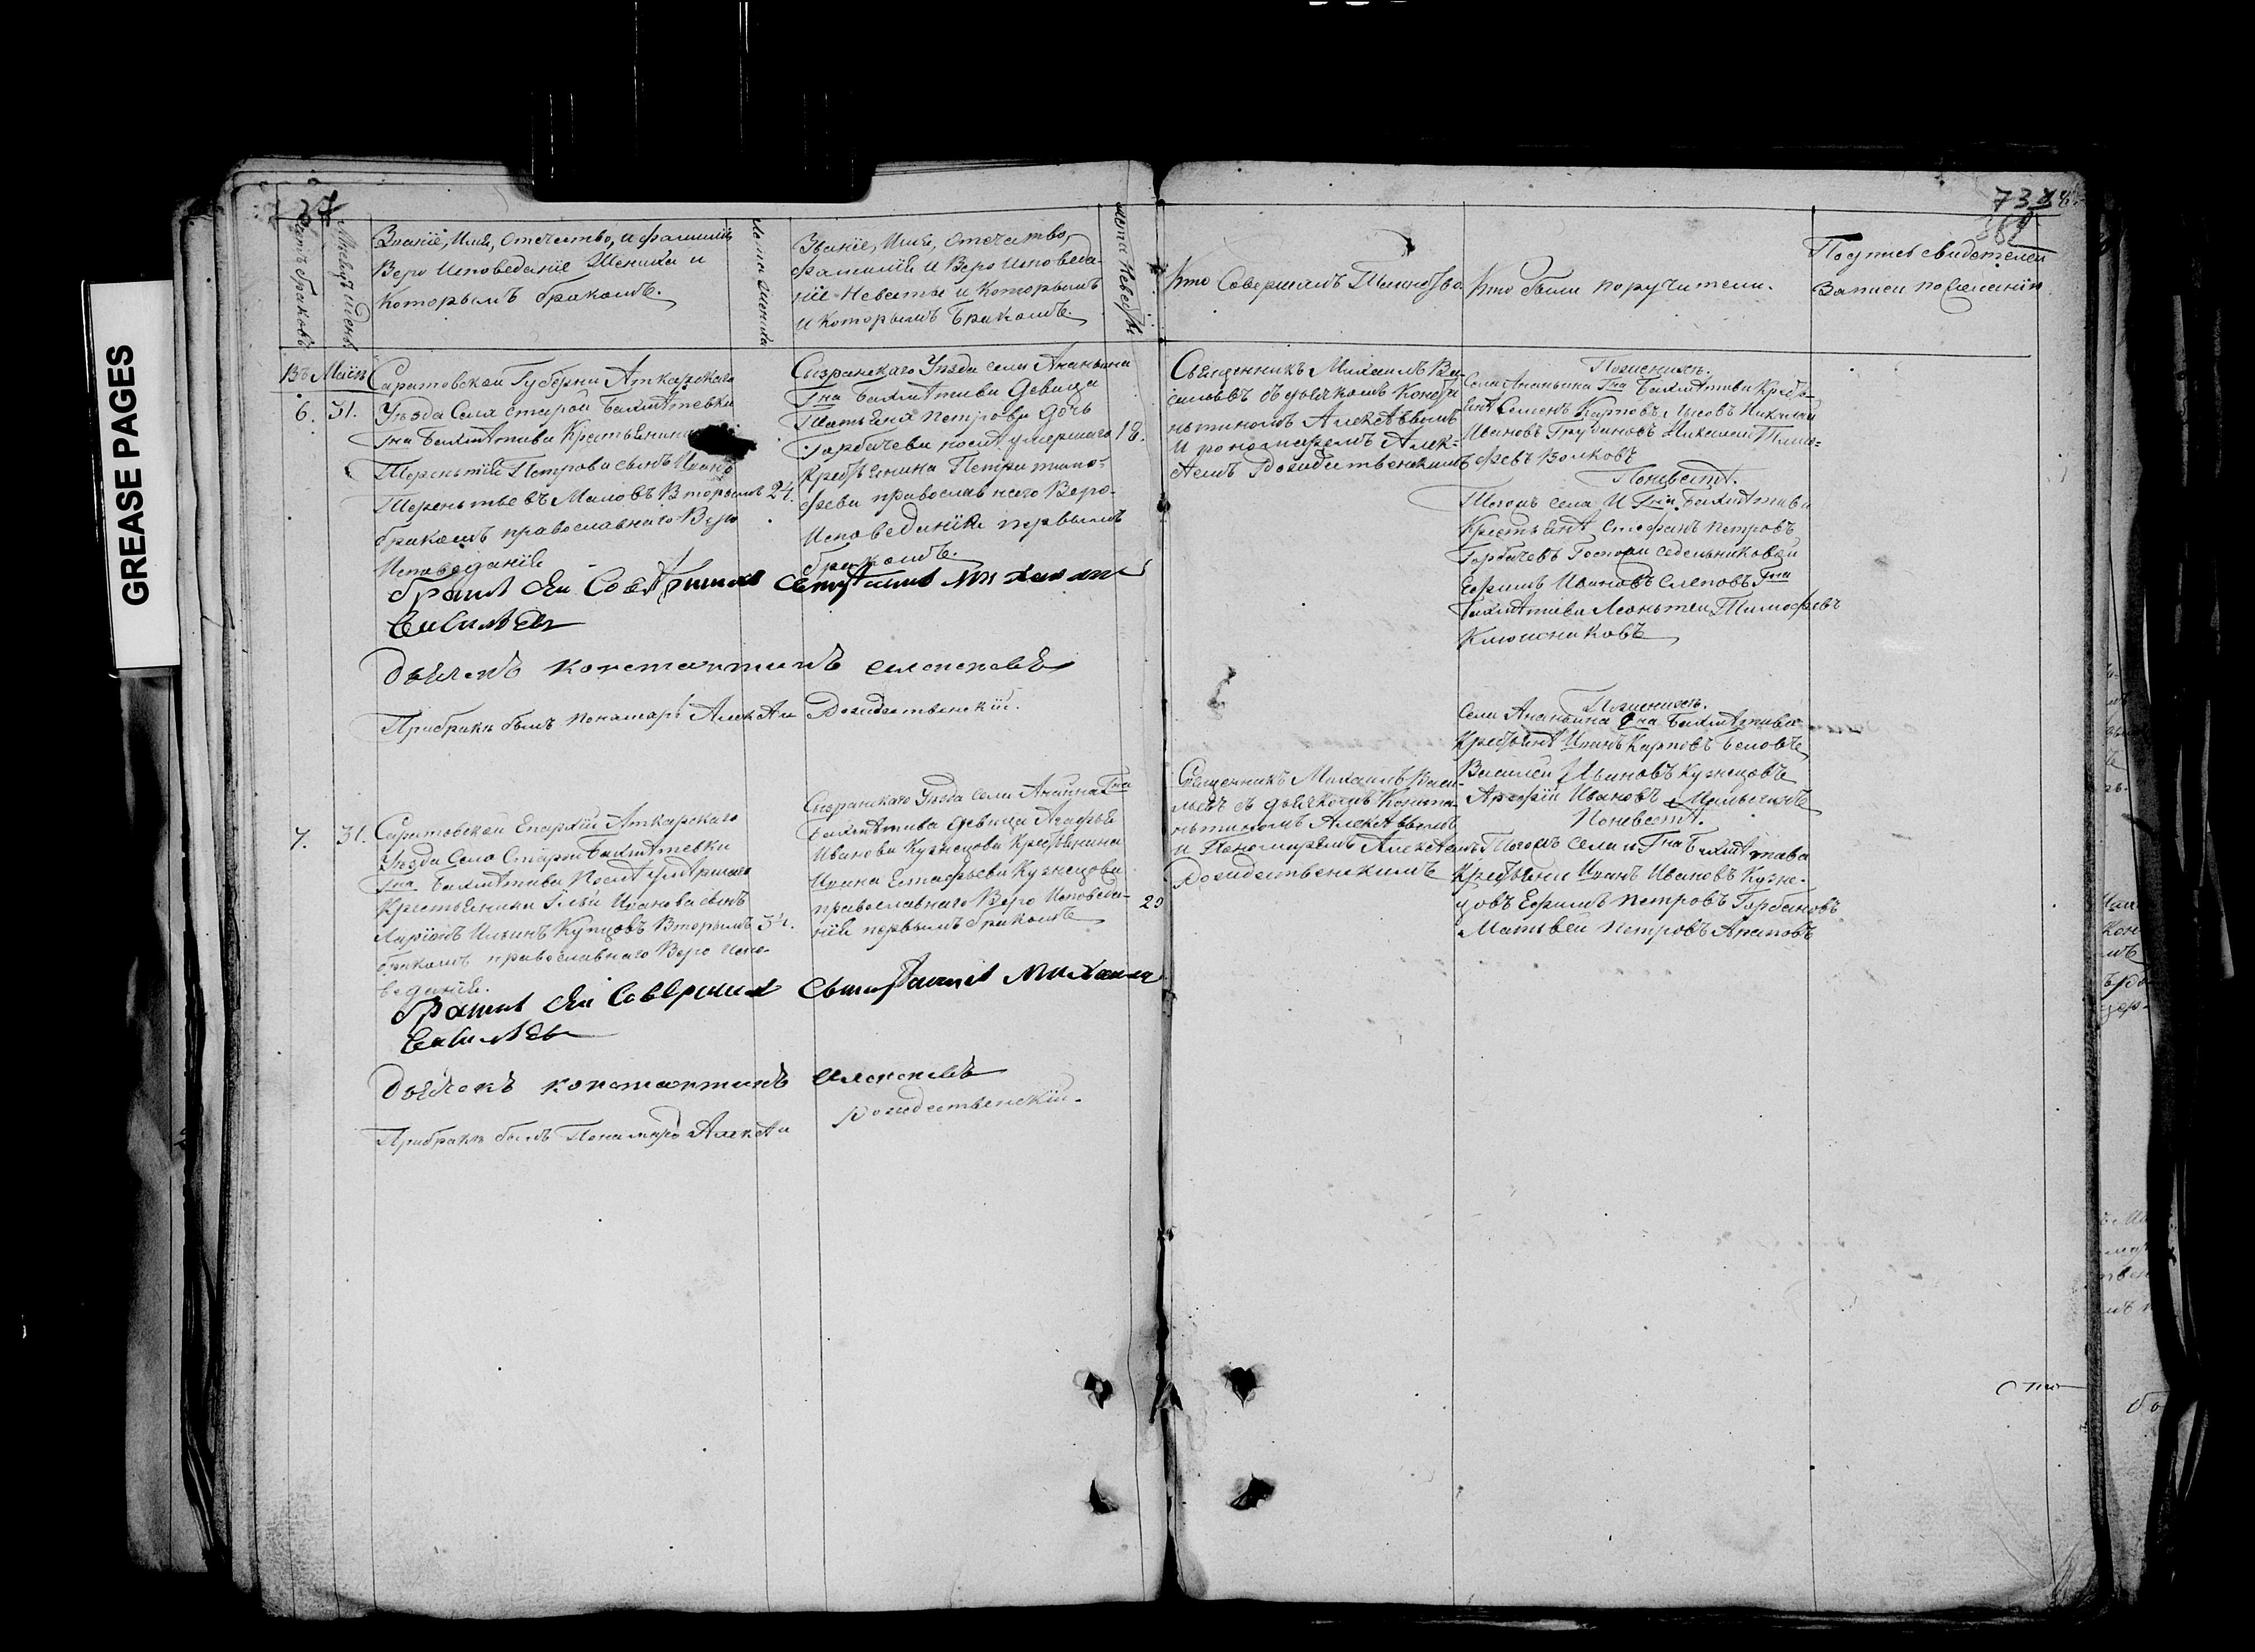 GREASE PAGES
738
369
Счетъ браковъ
Месецъ и день
Званіе, Имя, отечество, и фамилия
Веро исповеданіе Жениха и
которымъ бракомъ.
Лета жениха
Званіе, Имя, Отечатво,
фамилия и Веро исповеда-
ніе Невесты и Которымъ
и Которымъ бракомъ.
лета Невесты
Кто Совершалъ Таинство
Кто были поручители.
Подпись свидетелей
Записи по желанію
Въ Маіи
6. 31.
Саратовской Губерни Аткарскаго
Уѣзда Села Старой Бахметевки
Гна Бахметива Крестьянина
Терентій Петрова сынъ
Терентьевъ Маловъ Вторымъ
бракомъ православнаго Веро
Исповеданіе
24.
Сызранскаго Уѣзда села Ананьина
Гна Бахметива Девица
Татьяна Петрова дочь
Горбачева после умершаго
Крестьянина Петра тимо-
феева православнаго Веро-
Исповеданія первымъ
бракомъ.
18.
Священникъ Михаилъ Ва-
сильевъ съ дьячкомъ Конста
нтиномъ Алексѣевымъ
И пономаремъ Алек-
сѣемъ Рождественскимъ
Пожениху.
Села Ананьина Гна Бахметива Кресть-
яне Семенъ Карповъ Николай
Ивановъ Николай Тимо-
февъ Волковъ
Поневесте.
Тогожъ села И Гна Бахметива
Крестьяне Стефанъ Петровъ
Горбачевъ Госпожи Седельниковой
Ефимъ Ивановъ Слеповъ Гна
Бахметива Леонтей Тимофевъ
Ключниковъ
Бракъ сей Совершилъ Священникъ Михаилъ
Васильевъ
Дьячекъ Константинъ Алексеевъ
Прибраке былъ Пономарь Алексѣй Рождественскій.
7. 31.
Саратовской Епархіи Аткарскаго
Уѣзда Села Старой Бахметевки
Гна Бахметива После умершаго
Крестьянина Ильи Иванова сынъ
Ларіонъ Ильинъ Купцовъ Вторымъ
бракомъ православнаго Веро испо-
веданія.
34.
Сызранскаго Уѣзда села Ананина Гна
Бахметива девица Агафья
Иванова Кузнецова Крестьянина
Ивана Естафьева Кузнецова
православнаго Веро Исповеда-
нія первымъ бракомъ
20
Священникъ Михаилъ Васи-
льевъ съ дьячкомъ Конста-
нтиномъ Алексѣевымъ
и Пономаремъ Алексѣемъ
Рождественскимъ
Пожениху.
Села Ананьина Гна Бахметива
Крестьяне Иванъ Карповъ Беловъ
Василей Ивановъ Кузнецовъ
Арефій Ивановъ
Поневесте.
Тогожъ Села и Гна Бахметева
Крестьяне Иванъ Ивановъ Кузне-
цовъ Ефимъ Петровъ Горбановъ
Матьвей Петровъ Араповъ
Бракъ сей Совершилъ Священникъ Михаилъ
Васильевъ
Дьячекъ Константинъ Алексеевъ
Прибраке былъ Пономарь Алексѣй Рождественскій.